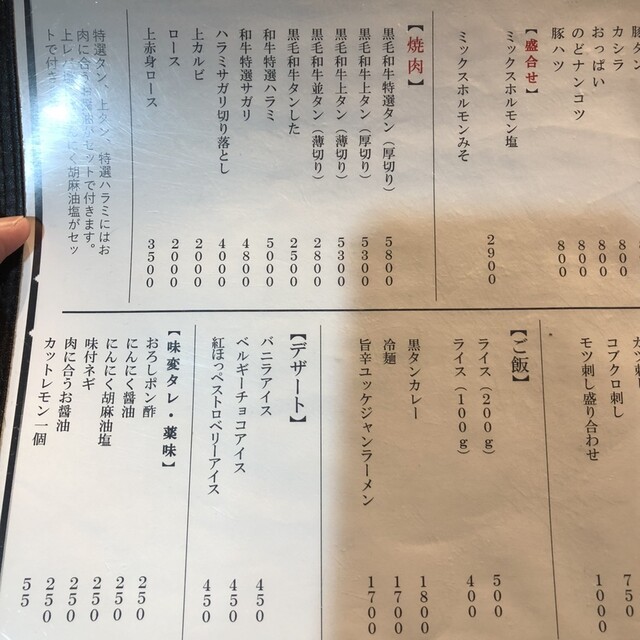 カシラ 800
おっぱい 800
のどナンコツ 800
豚ハツ 800
【盛合せ】
ミックスホルモン塩
ミックスホルモンみそ 2900
【焼肉】
黒毛和牛特選タン（厚切り） 5800
黒毛和牛上タン（厚切り） 5300
黒毛和牛上タン（薄切り） 5300
黒毛和牛並タン（薄切り） 2800
黒毛和牛タンした 2500
和牛特選ハラミ 5000
和牛特選サガリ 4800
ハラミサガリ切り落とし 4000
上カルビ 2000
ロース 2000
上赤身ロース 3500
特選タン、上タン、特選ハラミにはお
肉に合うお醤油がセットで付きます。
コブクロ刺し 750
モツ刺し盛り合わせ 1000
【ご飯】
ライス（200g） 500
ライス（100g） 400
黒タンカレー 1800
冷麺 1700
旨辛ユッケジャンラーメン 1700
【デザート】
バニラアイス 450
ベルギーチョコアイス 450
紅ほっぺストロベリーアイス 450
【味変タレ・薬味】
おろしポン酢 250
にんにく醤油 250
にんにく胡麻油塩 250
味付ネギ 250
肉に合うお醤油 250
カットレモン一個 55